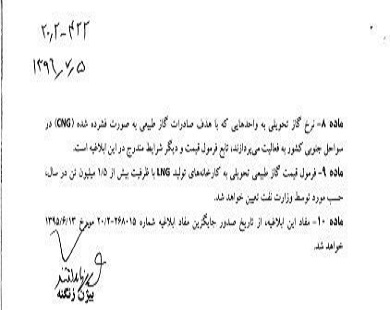 ۲۰/۲-۴۲۲
۱۳۹۶/۷/۵
ماده ۸- نرخ گاز تحویلی به واحدهایی که با هدف صادرات گاز طبیعی به صورت فشرده شده (CNG) در
سواحل جنوبی کشور به فعالیت می‌پردازند، تابع فرمول قیمت و دیگر شرایط مندرج در این ابلاغیه است.
ماده ۹- فرمول قیمت گاز طبیعی تحویلی به کارخانه‌های تولید LNG با ظرفیت بیش از ۱/۵ میلیون تن در سال،
حسب مورد توسط وزارت نفت تعیین خواهد شد.
ماده ۱۰- مفاد این ابلاغیه، از تاریخ صدور جایگزین مفاد ابلاغیه شماره ۲۶۸۰۱۵-۲۰/۲ مورخ ۱۳۹۵/۶/۱۳
خواهد شد.
بیژن زنگنه